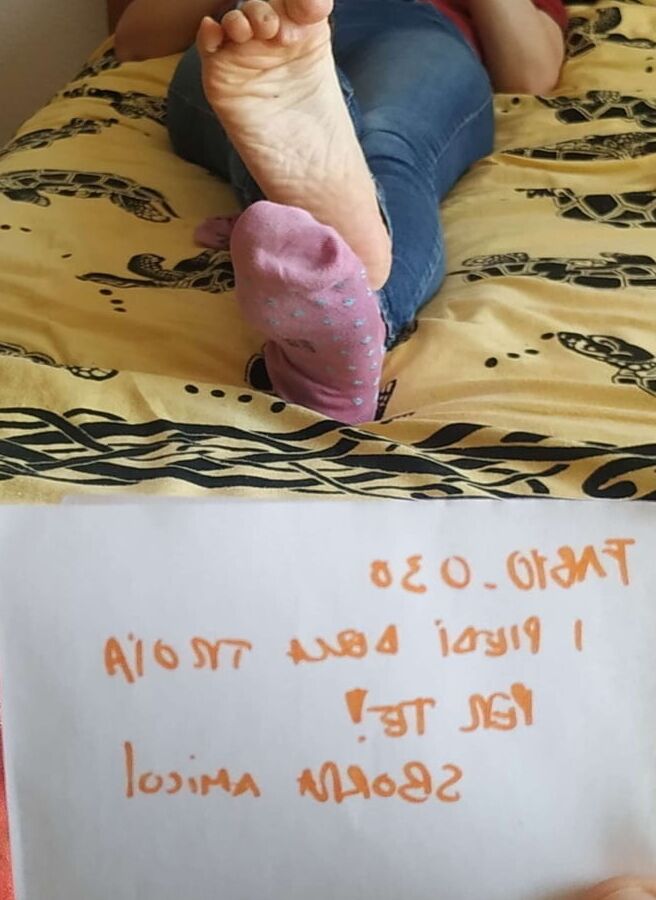 FABIO_030
I PIEDI DELLA TROIA
PER TE!
SBORRA AMICO!